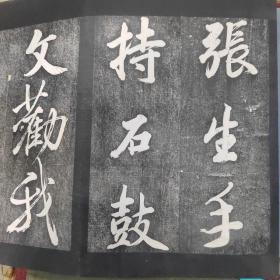 張生手
持石鼓
文勸我